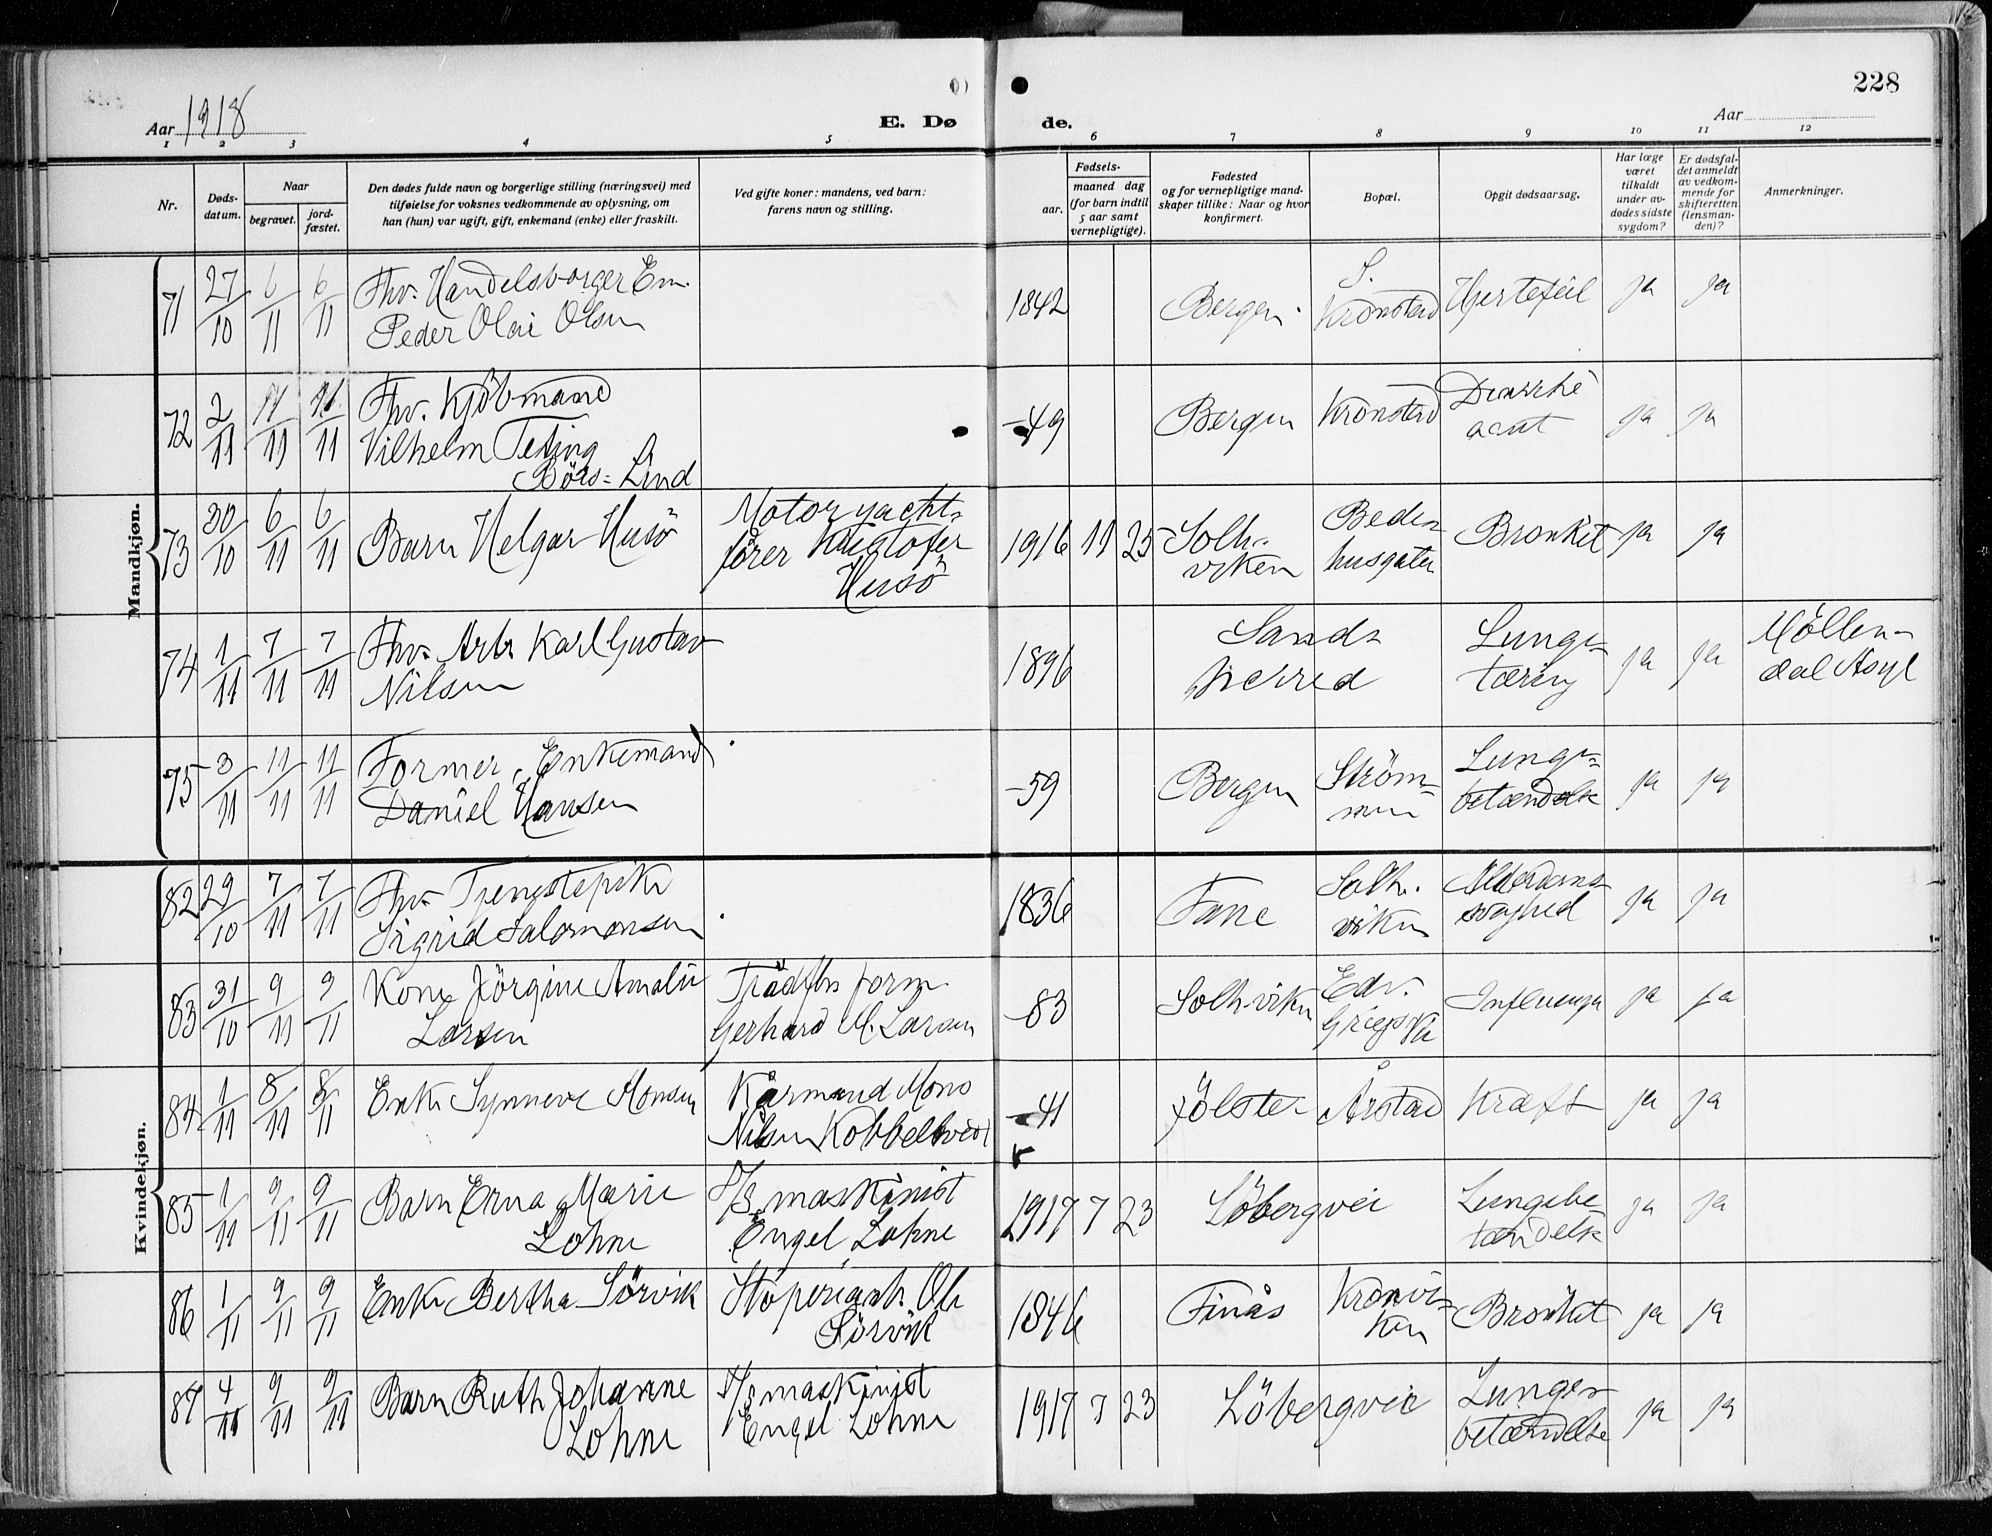 228
Aar 1918
E. Dø
de.
Aar
1 2 3 4 5 6 7 8 9 10 11 12
Nr.
Døds-
datum.
Naar
begravet.
jord-
fæstet.
Den dødes fulde navn og borgerlige stilling (næringsvei) med
tilføielse for voksnes vedkommende av oplysning, om
han (hun) var ugift, gift, enkemand (enke) eller fraskilt.
Ved gifte koner: mandens, ved barn:
farens navn og stilling.
Fødsels-
aar.
maaned dag
(for barn indtil
5 aar samt
vernepligtige).
Fødested
og for vernepligtige mand-
skaper tillike: Naar og hvor
konfirmert.
Bopæl.
Opgit dødsaarsag.
Har læge
været
tilkaldt
under av-
dødes sidste
sygdom?
Er dødsfal-
det anmeldt
av vedkom-
mende for
skifteretten
(lensman-
den)?
Anmerkninger.
Mandkjøn.
71 27/10 6/11 6/11 Fhv. Handelsborger Em. 1842 Bergen S. Kronstad Hjertefeil ja ja
Peder Olai Olsen
72 2/11 11/11 11/11 Fhv. Kjöbmand -49 Bergen Kronstad ja ja
Vilhelm
Börs-Lind
73 30/10 6/11 6/11 Barn Helgar Husö Motoryacht-
fører Kristofer
Husö 1916 11 25 Solh-
viken Bede-
husgaten Bronkit ja ja
74 1/11 7/11 7/11 Fhv. Arb. Karl Gustav 1896 Sand-
herred Lunge-
tæring ja ja Möllen-
dal Asyl
Nilsen
75 3/11 11/11 11/11 Former, Enkemand -59 Bergen Ström-
men Lunge-
betændelse ja ja
Daniel Hansen
Kvindekjøn.
82 29/10 7/11 7/11 Fhv. Tjenestepike 1836 Fane Solh.
viken Alderdoms-
svaghed ja ja
Sigrid Salomonsen
83 31/10 9/11 9/11 Kone Jörgine Amalie
Larsen form.
Gerhard M. Larsen -83 Solhviken Edv.
Griegs Influenza ja ja
84 1/11 8/11 8/11 Enke Synneve Monsen Kårmand Mons
Nilsen Kobbeltvedt -41 Jölster Årstad Kræft ja ja
85 1/11 9/11 9/11 Barn Erna Marie
Lohne S/S maskinist
Engel Lohne 1917 7 23 Löbergvei Lungebe-
tændelse ja ja
86 1/11 9/11 9/11 Enke Bertha Sörvik Støperiarb. Ole
Sörvik 1846 Finås Kronvi-
ken Bronkit ja ja
87 4/11 9/11 9/11 Barn Ruth Johanne
Lohne S/S maskinist
Engel Lohne 1917 7 23 Löbergvei Lunge-
betændelse ja ja